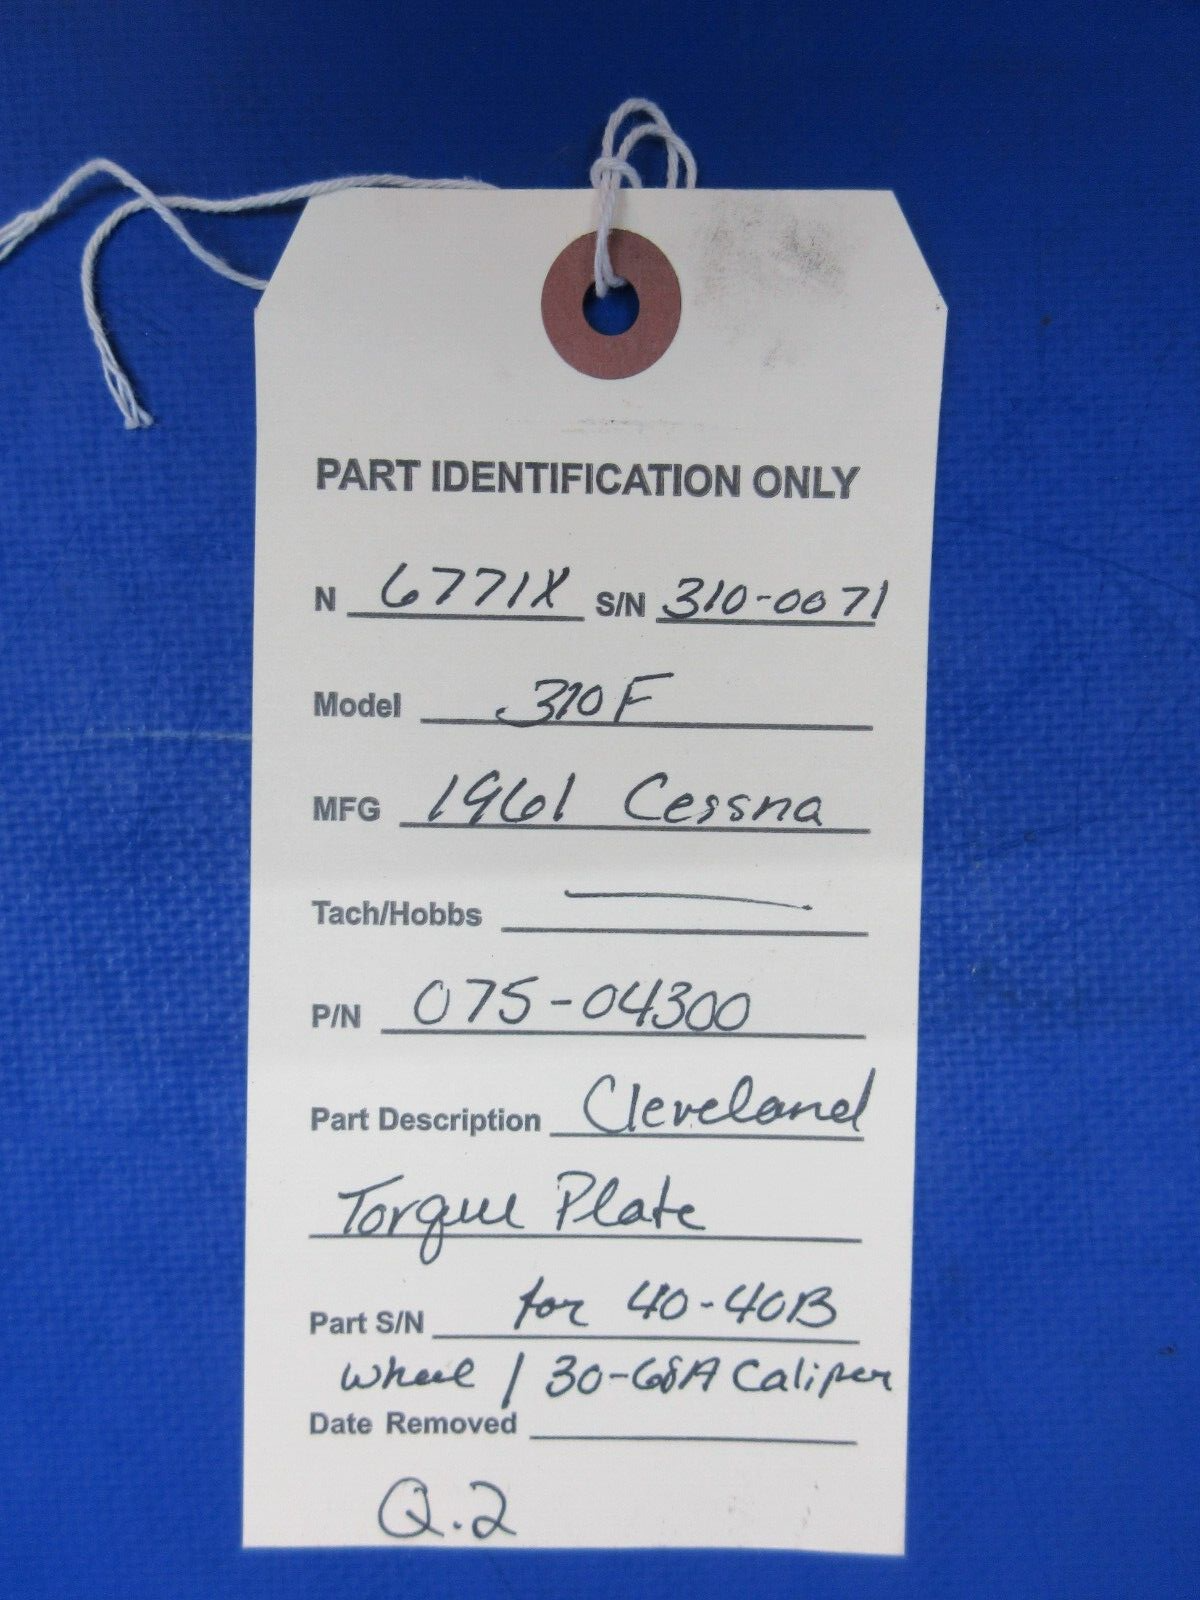 PART IDENTIFICATION ONLY
N 6771X S/N 310-0071
Model 310F
MFG 1961 Cessna
Tach/Hobbs —
P/N 075-04300
Part Description Cleveland
Torque Plate
Part S/N for 40-40B
wheel / 30-68A Caliper
Date Removed
Q.2